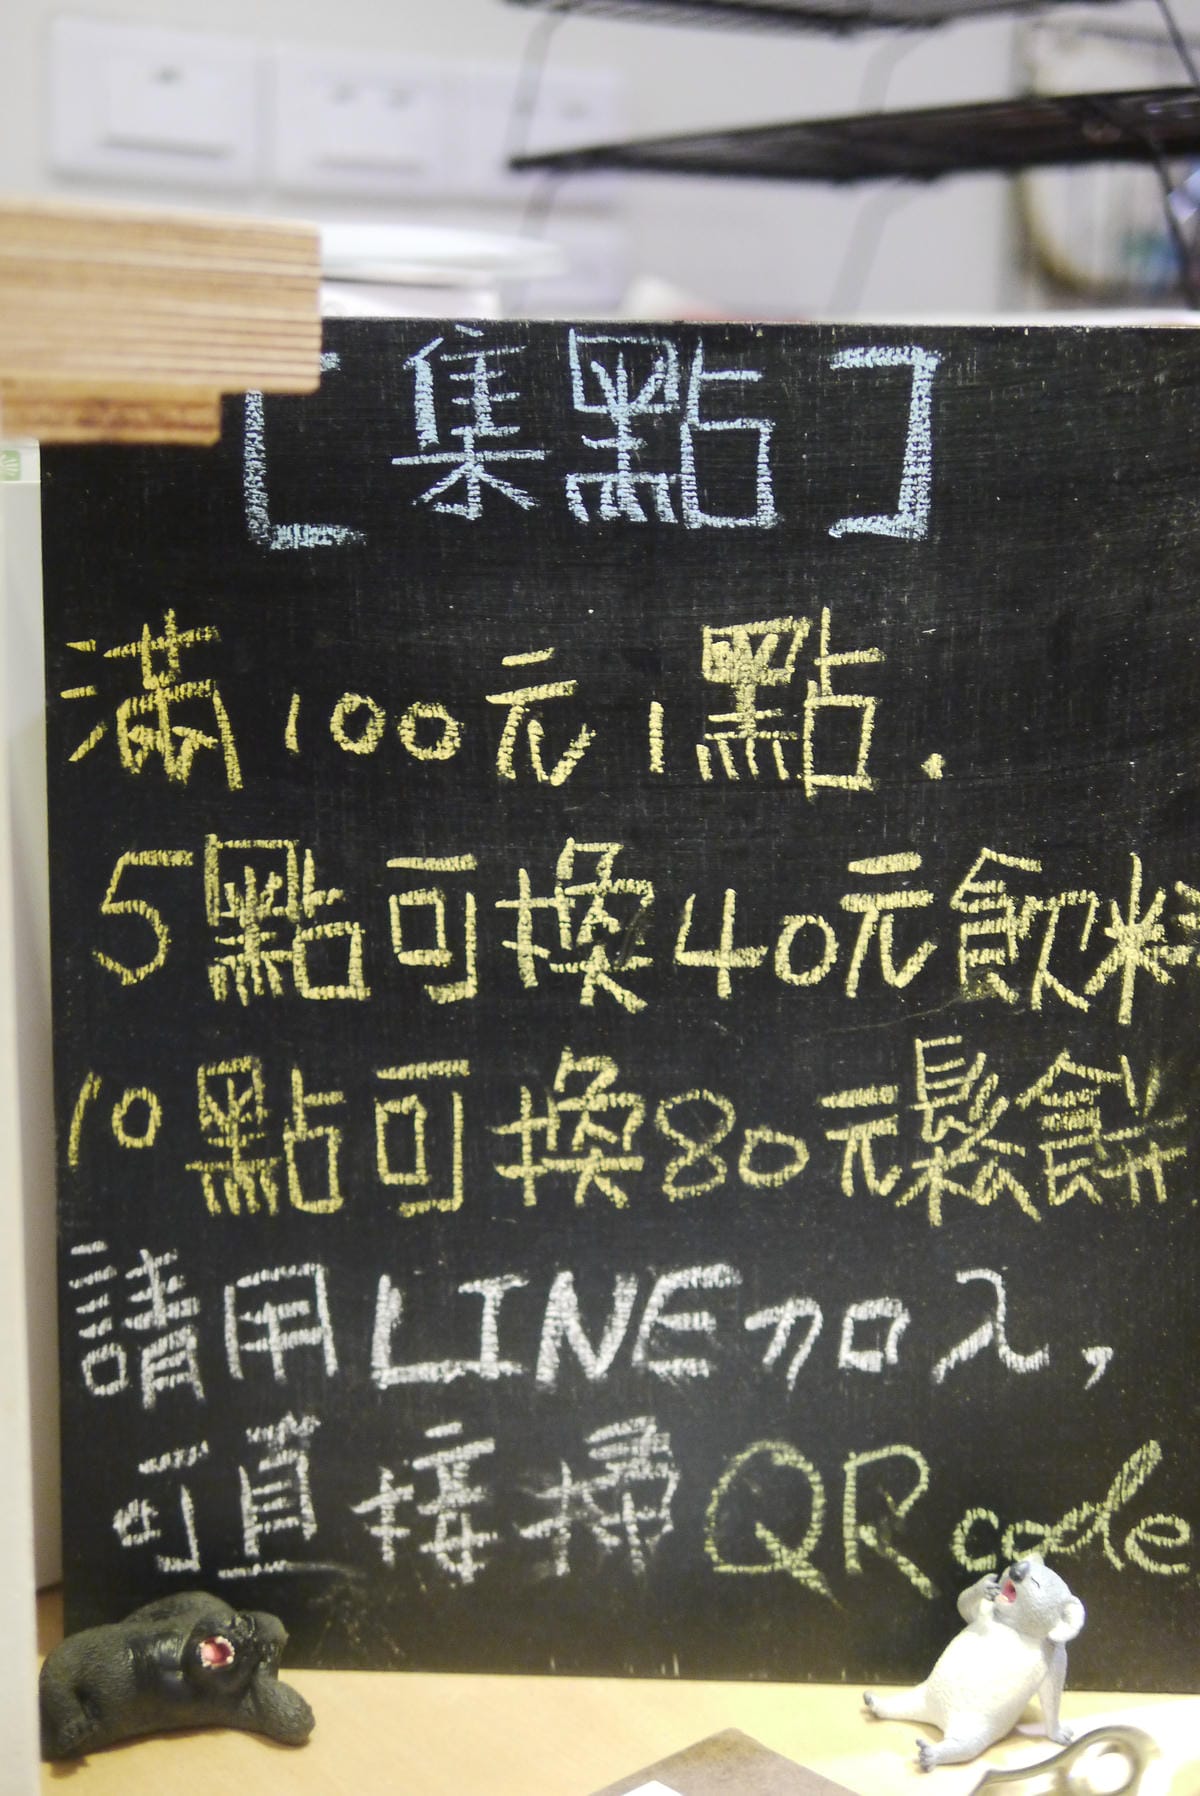 [集點]
滿100元1點.
5點可換40元飲料
10點可換80元鬆餅
請用LINE加入,
可直接掃QR code